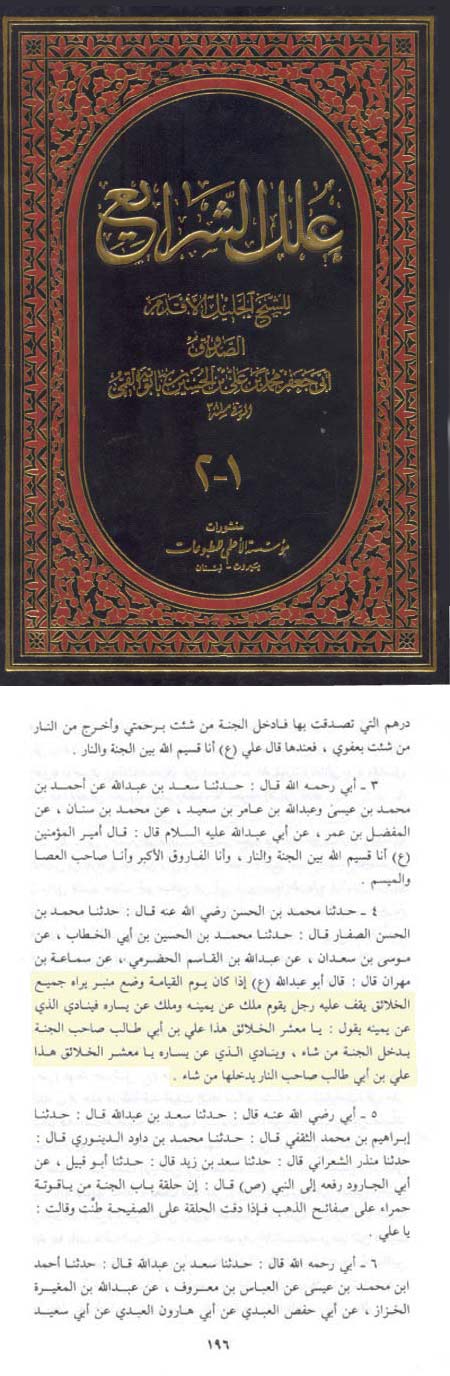 علل الشرايع
للشيخ الجليل الأقدم
الصدوق
أبي جعفر محمد بن علي بن الحسين بن بابويه القمي
١-٢
منشورات
مؤسسة الأعلمي للمطبوعات
بيروت - لبنان
درهم التي تصدقت بها فادخل الجنة من شئت برحمتي وأخرج من النار
من شئت بعفوي ، فعندها قال علي (ع) أنا قسيم الله بين الجنة والنار .
٣ - أبي رحمه الله قال : حدثنا سعد بن عبدالله عن أحمد بن
محمد بن عيسى وعبدالله بن عامر بن سعيد ، عن محمد بن سنان ، عن
المفضل بن عمر ، عن أبي عبدالله عليه السلام قال : قال أمير المؤمنين
(ع) أنا قسيم الله بين الجنة والنار ، وأنا الفاروق الأكبر وأنا صاحب العصا
والميسم .
٤ - حدثنا محمد بن الحسن رضي الله عنه قال : حدثنا محمد بن
الحسن الصفار قال : حدثنا محمد بن الحسين بن أبي الخطاب ، عن
موسى بن سعدان ، عن عبدالله بن القاسم الحضرمي ، عن سماعة بن
مهران قال : قال أبو عبدالله (ع) إذا كان يوم القيامة وضع منبر يراه جميع
الخلائق يقف عليه رجل يقوم ملك عن يمينه وملك عن يساره فينادي الذي
عن يمينه يقول : يا معشر الخلائق هذا علي بن أبي طالب صاحب الجنة
يدخل الجنة من شاء ، وينادي الذي عن يساره يا معشر الخلائق هذا
علي بن أبي طالب صاحب النار يدخلها من شاء .
٥ - أبي رضي الله عنه قال : حدثنا سعد بن عبدالله قال : حدثنا
إبراهيم بن محمد الثقفي قال : حدثنا محمد بن داود الدينوري قال :
حدثنا منذر الشعراني قال : حدثنا سعد بن زيد قال : حدثنا أبو قبيل ، عن
أبي الجارود رفعه إلى النبي (ص) قال : إن حلقة باب الجنة من ياقوتة
حمراء على صفائح الذهب فإذا دقت الحلقة على الصفيحة طنّت وقالت :
يا علي .
٦ - أبي رحمه الله قال : حدثنا سعد بن عبدالله قال : حدثنا أحمد
ابن محمد بن عيسى عن العباس بن معروف ، عن عبدالله بن المغيرة
الخزاز ، عن أبي حفص العبدي عن أبي هارون العبدي عن أبي سعيد
١٩٦